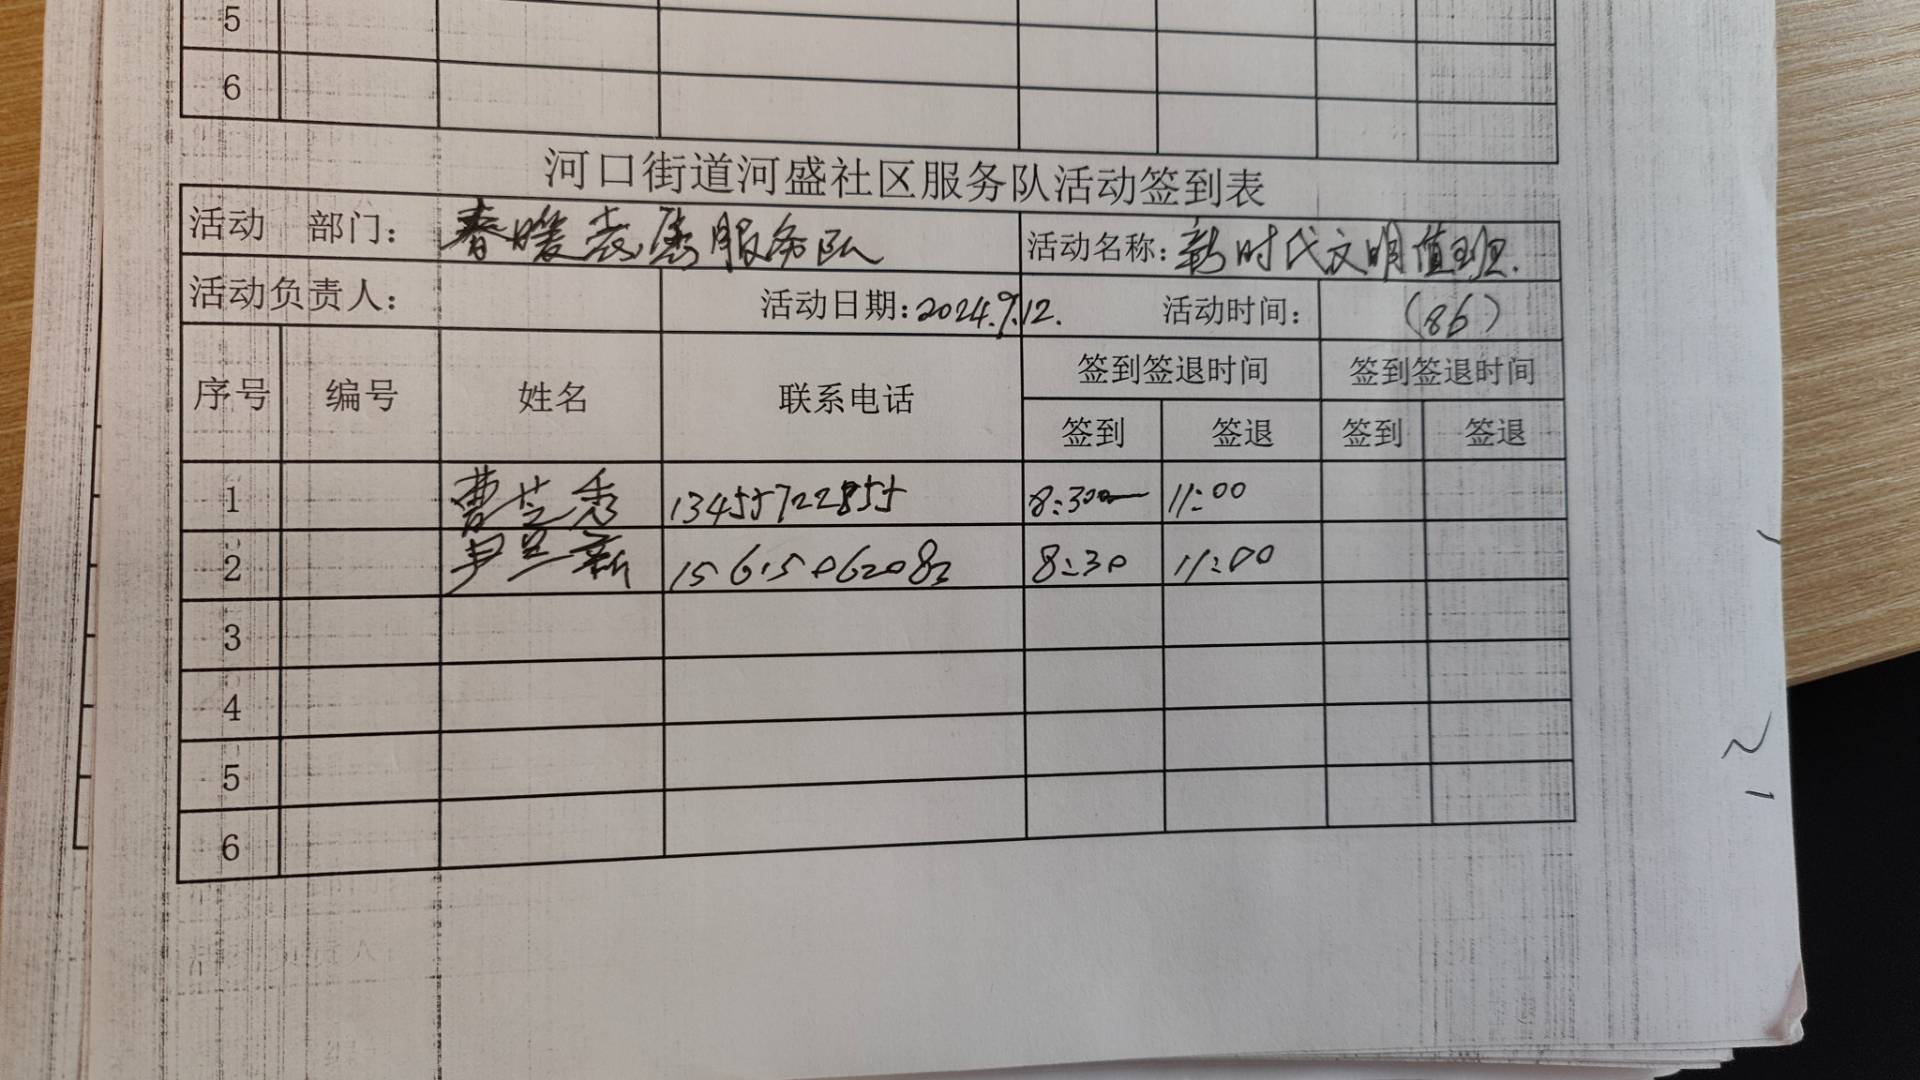 5
6
河口街道河盛社区服务队活动签到表
活动 部门： 春暖 服务队 活动名称：新时代文明值班.
活动负责人： 活动日期：2024.9.12. 活动时间： (86)
序号 编号 姓名 联系电话 签到签退时间 签到签退时间
签到 签退 签到 签退
1 曹芝秀 13455722855 8:30 11:00
2 尹兰新 15615062082 8:30 11:00
3
4
5
6